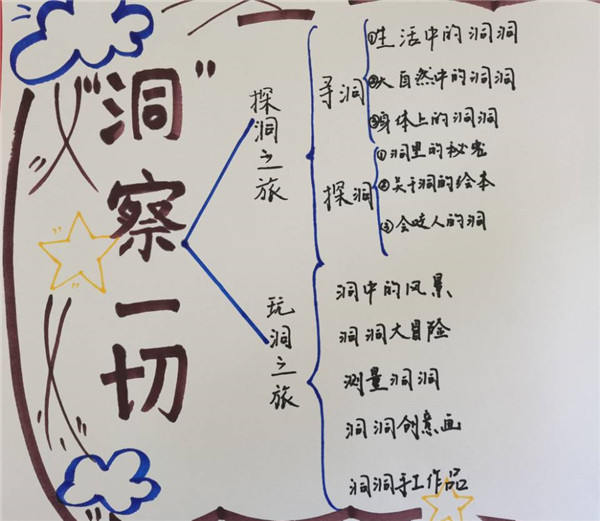 “洞”察一切
探洞之旅
寻洞
①生活中的洞洞
②大自然中的洞洞
③身体上的洞洞
探洞
①洞里的秘密
②关于洞的绘本
③会咬人的洞
玩洞之旅
洞中的风景
洞洞大冒险
测量洞洞
洞洞创意画
洞洞手工作品